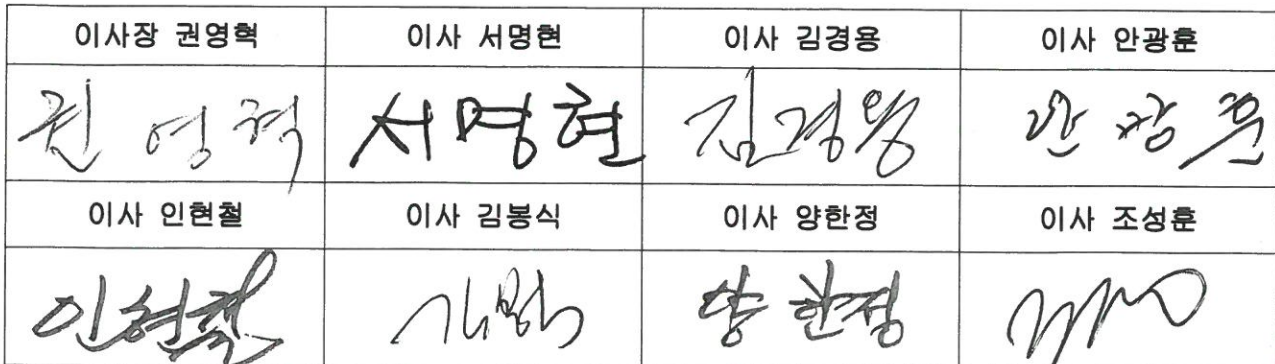 이사장 권영혁 이사 서명현 이사 김경용 이사 안광훈
권영혁 서명현 김경용 안광훈
이사 인현철 이사 김봉식 이사 양한정 이사 조성훈
인현철 양한정